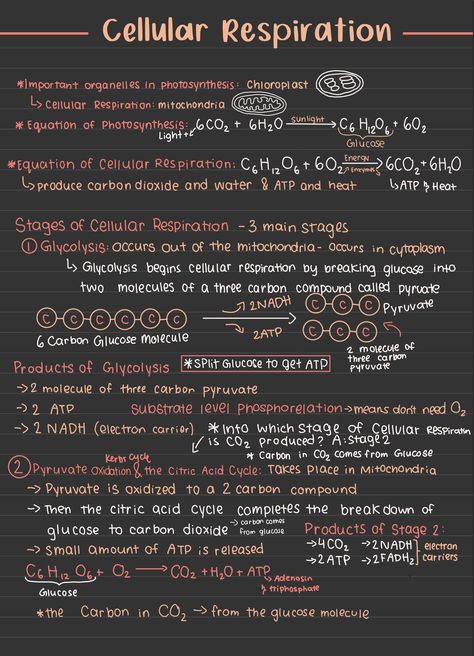 Cellular Respiration
*Important organelles in photosynthesis: Chloroplast
↳ Cellular Respiration: mitochondria
*Equation of Photosynthesis: 6CO2 + 6H2O —Sunlight→ C6H12O6 + 6O2
Light+
Glucose
*Equation of Cellular Respiration: C6H12O6 + 6O2 —Energy→ 6CO2+6H2O
Enzymes
↳ produce carbon dioxide and water & ATP and heat
↳ATP & Heat
Stages of Cellular Respiration - 3 main stages
① Glycolysis: occurs out of the mitochondria - occurs in cytoplasm
↳ Glycolysis begins cellular respiration by breaking glucose into
two molecules of a three carbon compound called pyruate
C C C C C C
→ 2NADH
→ 2ATP
C C C Pyruvate
C C C
6 Carbon Glucose Molecule
2 molecule of
three carbon
pyruvate
Products of Glycolysis
*Split Glucose to get ATP
→ 2 molecule of three carbon pyruvate
→ 2 ATP
Substrate level phosphorelation → means don't need O2
→ 2 NADH (electron carrier)
*Into which stage of Cellular Respiration
is CO2 produced? A: stage 2
* Carbon in CO2 comes from Glucose
Kerbs Cycle
② Pyruvate Oxidation & the Citric Acid Cycle: Takes place in Mitochondria
→ Pyruvate is oxidized to a 2 carbon compound
→ Then the citric acid cycle completes the breakdown of
glucose to carbon dioxide → carbon comes
from glucose
→ Small amount of ATP is released
Products of Stage 2:
→4CO2 →2NADH
→2ATP →2FADH2
electron
carriers
C6H12O6 + O2 → CO2 + H2O + ATP
Glucose
↳ Adenosin
triphosphate
*the Carbon in CO2 → from the glucose molecule